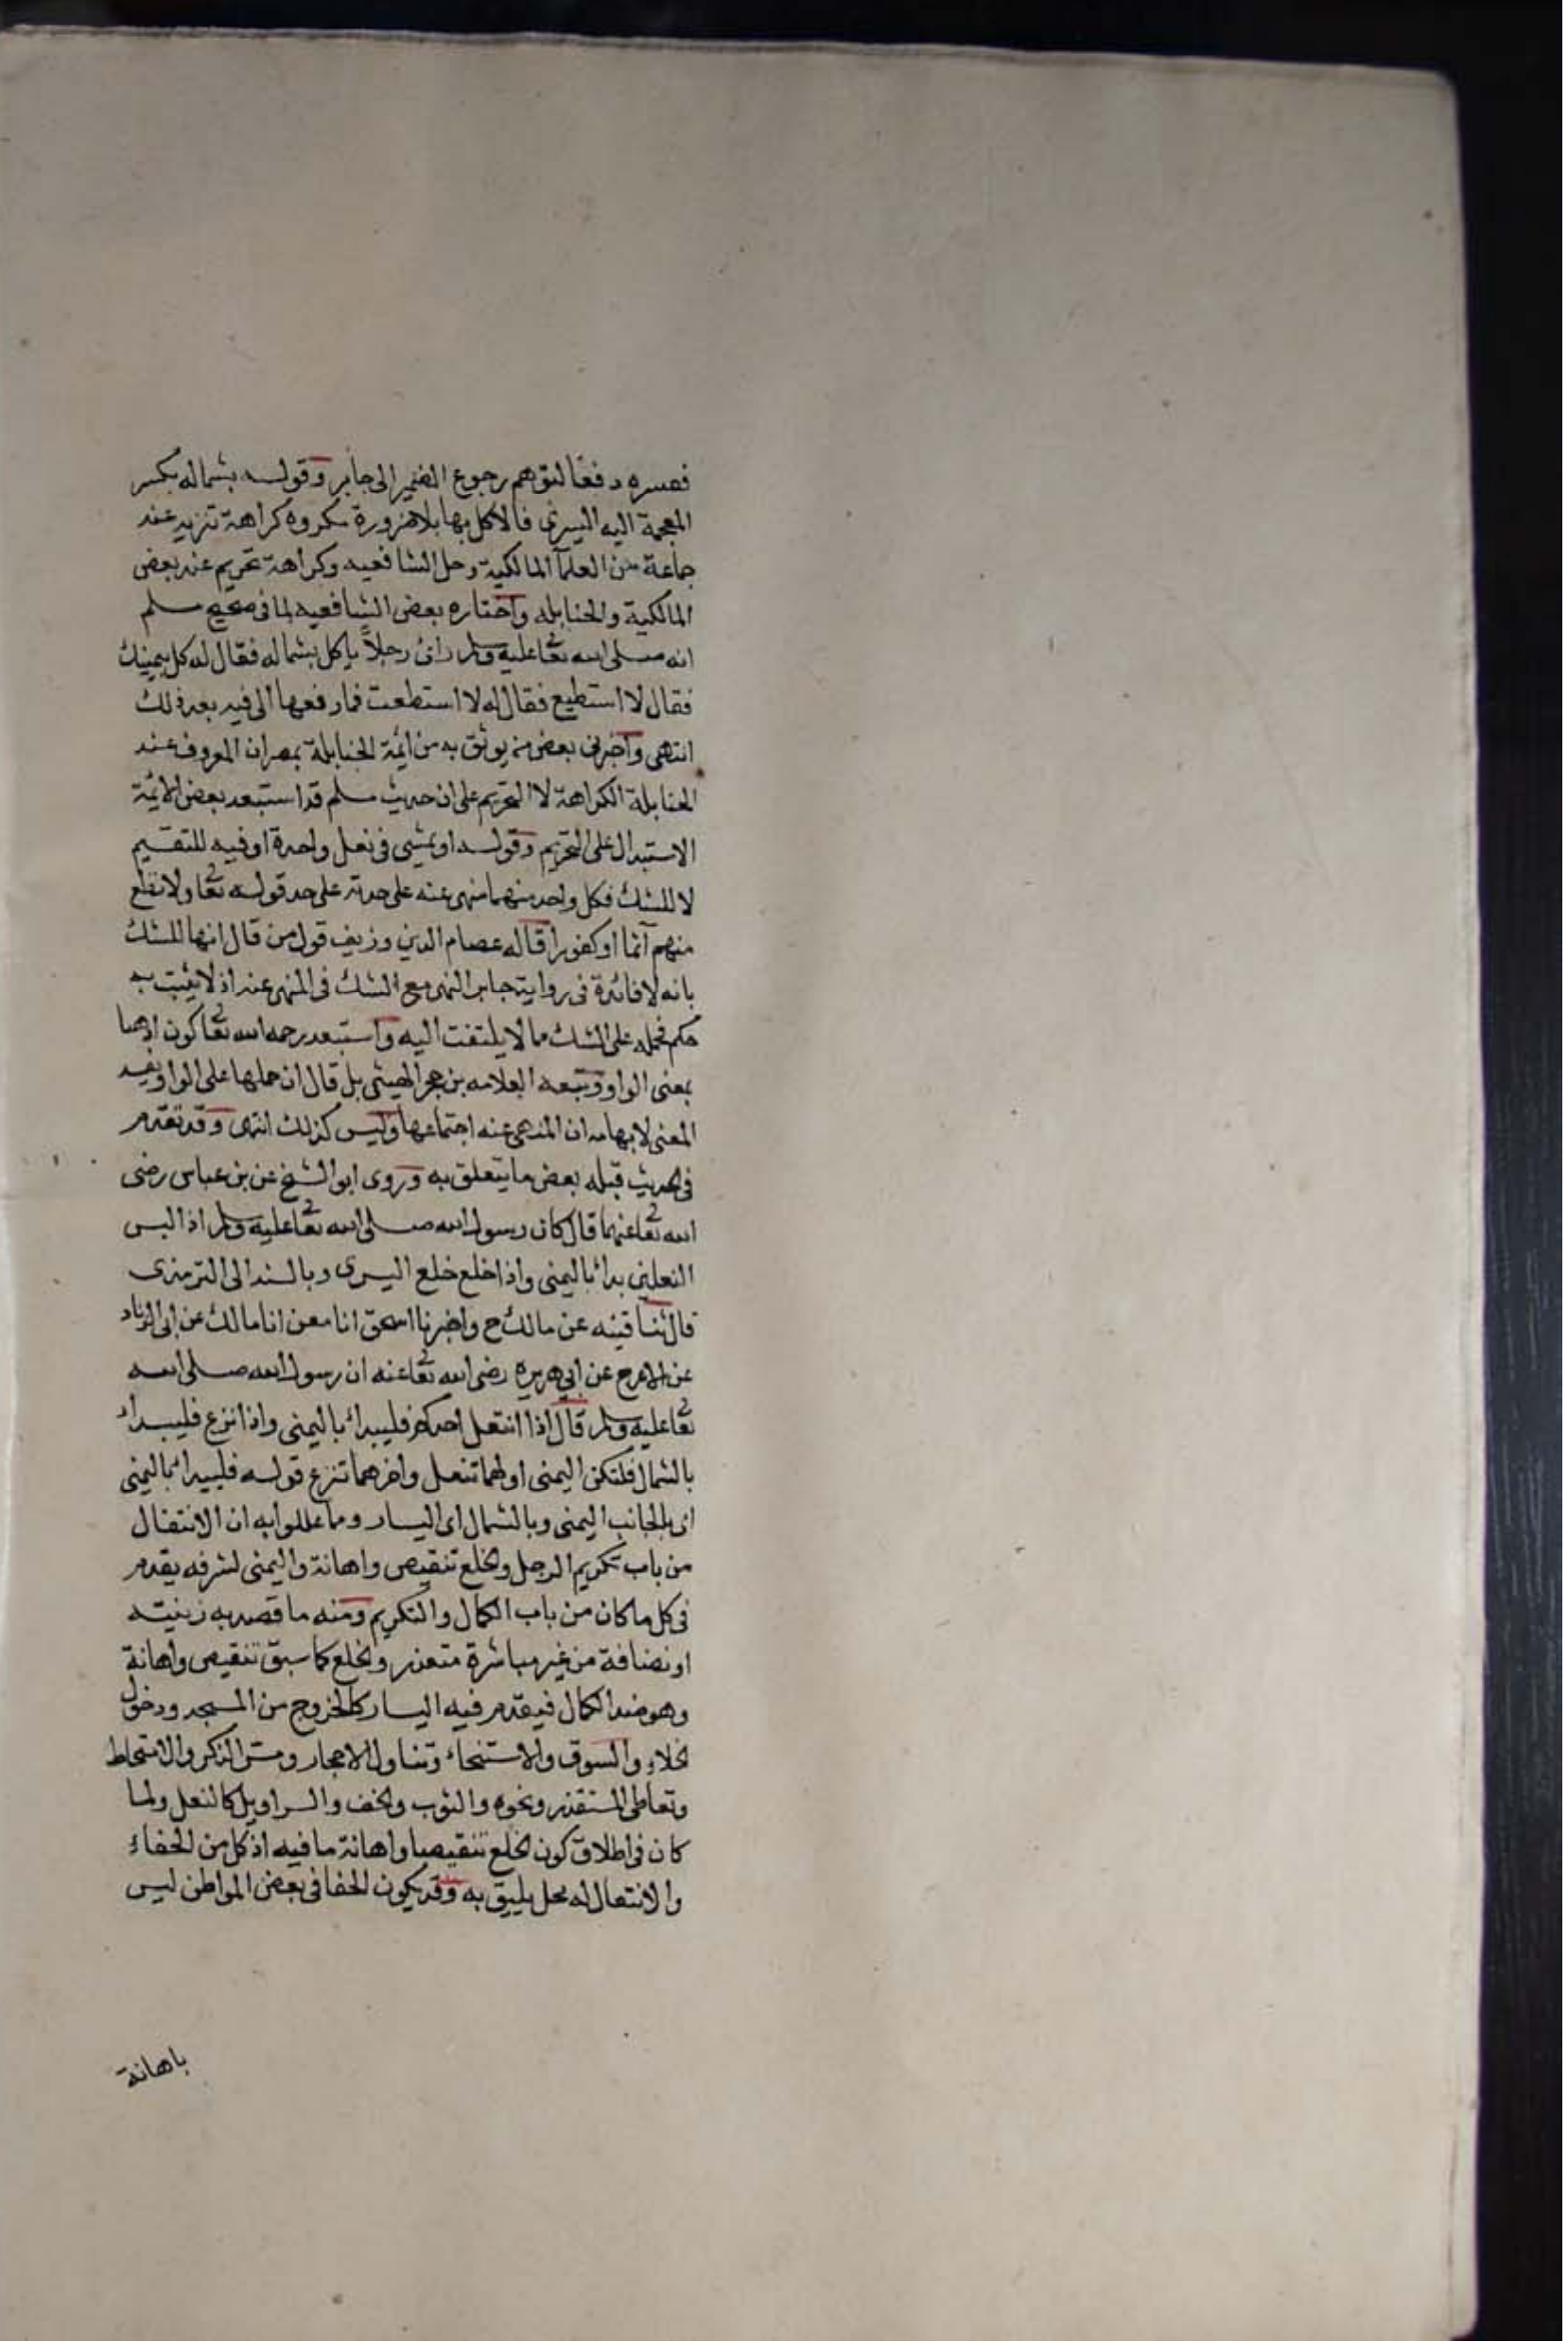 ففسره دفعا لتوهم رجوع الضمير الى جابر وقوله بشماله بكسر
المعجمة اليد اليسرى فالاكل بها بلا ضرورة مكروه كراهة تنزيه عند
جماعة من العلمآ المالكية وجل الشافعيه وكراهة تحريم عند بعض
المالكية والحنابله واختاره بعض الشافعيه لما فى صحيح مسلم
انه صلى الله تعا عليه وسلم رائ رجلاً ياكل بشماله فقال له كل بيمينك
فقال لا استطيع فقال له لا استطعت فما رفعها الى فيه بعد ذلك
انتهى واخبرنى بعض من يوثق به من ائمة الحنابلة بمصر ان المعروف عند
الحنابلة الكراهة لا التحريم على ان حديث مسلم قد استبعد بعض الائمة
الاستدلال على التحريم وقوله او يمشى فى نعل واحدة او فيه للتقسيم
لا للشك فكل واحد منهما منهى عنه على حدته على حد قوله تعا ولا تطع
منهم آثما او كفورا قاله عصام الدين وزيف قول من قال انها للشك
بانه لا فائدة فى رواية جابر النهى مع الشك فى المنهى عنه اذ لا يثبت به
حكم فحمله على الشك مما لا يلتفت اليه واستبعد رحمه الله تعا كون او هنا
بمعنى الواو وتبعه العلامه بن حجر الهيتمى بل قال ان حملها على الواو يفسد
المعنى لابهامه ان المنهى عنه اجتماعها وليس كذلك انتهى وقد تقدم
فى الحديث قبله بعض ما يتعلق به وروى ابو الشيخ عن بن عباس رضى
الله تعا عنهما قال كان رسول الله صلى الله تعا عليه وسلم اذا لبس
النعلين بدا باليمنى واذا خلع خلع اليسرى وبالسند الى الترمذى
قال ثنا قتيبه عن مالك ح واخبرنا اسحق انا معن انا مالك عن ابى الزناد
عن الاعرج عن ابي هريره رضى الله تعا عنه ان رسول الله صلى الله
تعا عليه وسلم قال اذا انتعل احدكم فليبدا باليمنى واذا نزع فليبدا
بالشمال فلتكن اليمنى اولهما تنعل واخرهما تنزع قوله فليبدا باليمنى
اى بالجانب اليمنى وبالشمال اى اليسار ومما عللوا به ان الانتعال
من باب تكريم الرجل والخلع تنقيص واهانة واليمنى لشرفه يقدم
فى كل ما كان من باب الكمال والتكريم ومنه ما قصد به زينته
او نضافة من غير مباشرة متعذر والخلع كما سبق تنقيص واهانة
وهو ضد الكمال فيقدم فيه اليسار كالخروج من المسجد ودخول
الخلاء والسوق والاستنجاء وتناول الاحجار ومس الذكر والامتخاط
وتعاطى المستقذر ونحوه والثوب والخف والسراويل كالنعل ولما
كان فى اطلاق كون الخلع تنقيصا واهانة ما فيه اذ كل من الحفاء
والانتعال له محل يليق به وقد يكون الحفا فى بعض المواطن ليس
باهانة